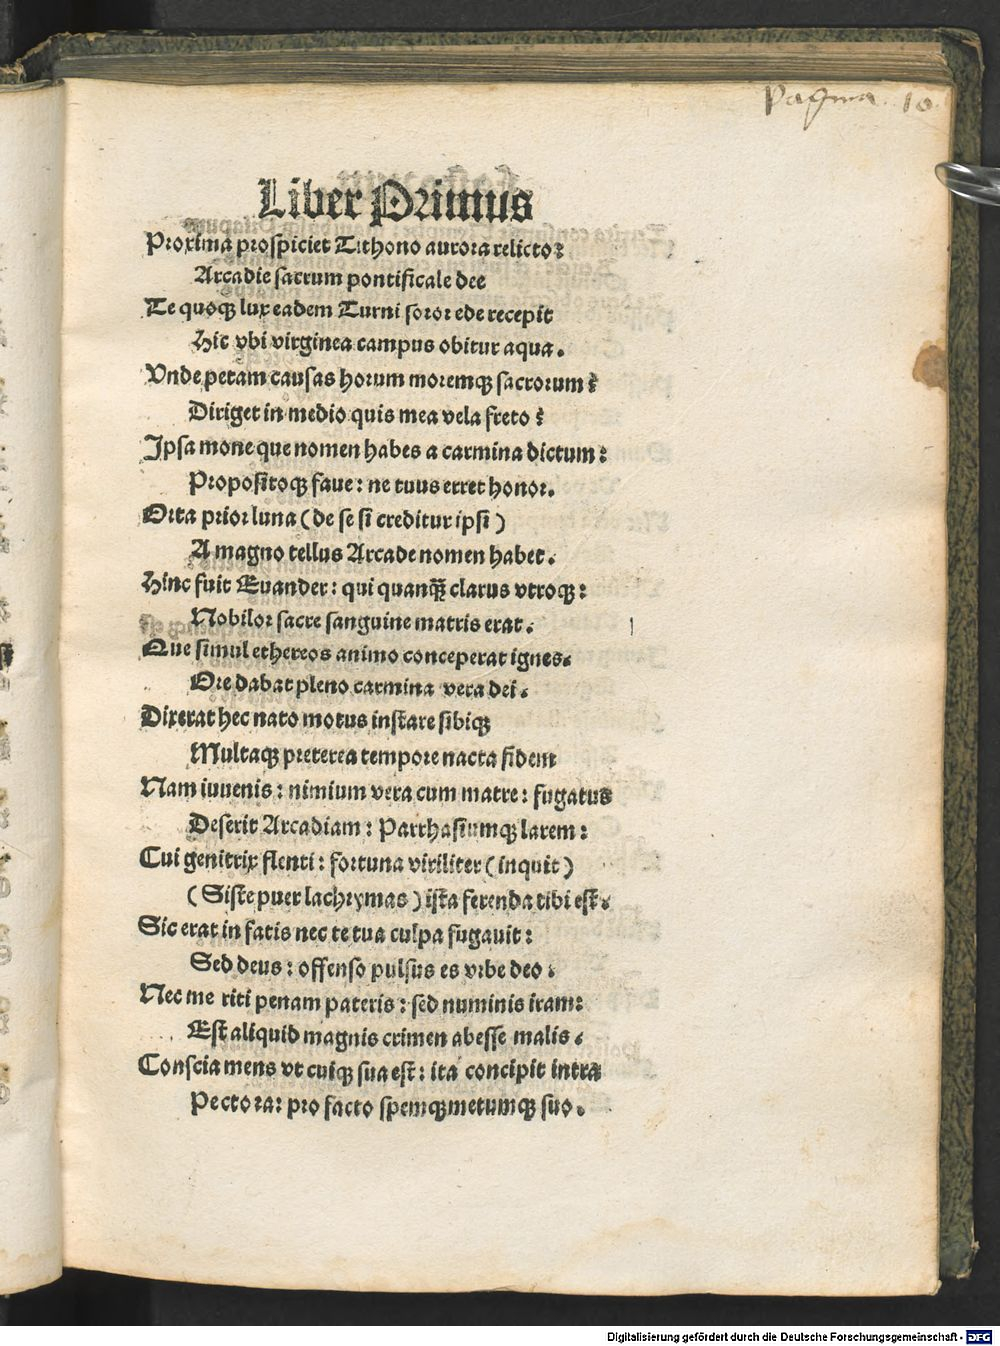 Pagina. 10
Liber Primus
Proxima prospiciet Tithono aurora relicto:
Arcadie sacrum pontificale dee
Te quoqꝫ lux eadem Turni soror ede recepit
Hic vbi virginea campus obitur aqua.
Vnde petam causas horum moremqꝫ sacrorum?
Diriget in medio quis mea vela freto?
Ipsa mone que nomen habes a carmina dictum:
Propositoqꝫ faue: ne tuus erret honor.
Orta prior luna (de se si creditur ipsi)
A magno tellus Arcade nomen habet.
Hinc fuit Euander: qui quanqꝫ̃ clarus vtroqꝫ:
Nobilor sacre sanguine matris erat.
Que simul ethereos animo conceperat ignes.
Ore dabat pleno carmina vera dei.
Dixerat hec nato motus instare sibiqꝫ
Multaqꝫ preterea tempore nacta fidem
Nam iuuenis: nimium vera cum matre: fugatus
Deserit Arcadiam: Parrhasiumqꝫ larem:
Cui genitrix flenti: fortuna viriliter (inquit)
(Siste puer lachrymas) ista ferenda tibi est.
Sic erat in fatis nec te tua culpa fugauit:
Sed deus: offenso pulsus es vrbe deo.
Nec me riti penam pateris: sed numinis iram:
Est aliquid magnis crimen abesse malis.
Conscia mens vt cuiqꝫ sua est: ita concipit intra
Pectora: pro facto spemqꝫ metumqꝫ suo.
Digitalisierung gefördert durch die Deutsche Forschungsgemeinschaft - DFG